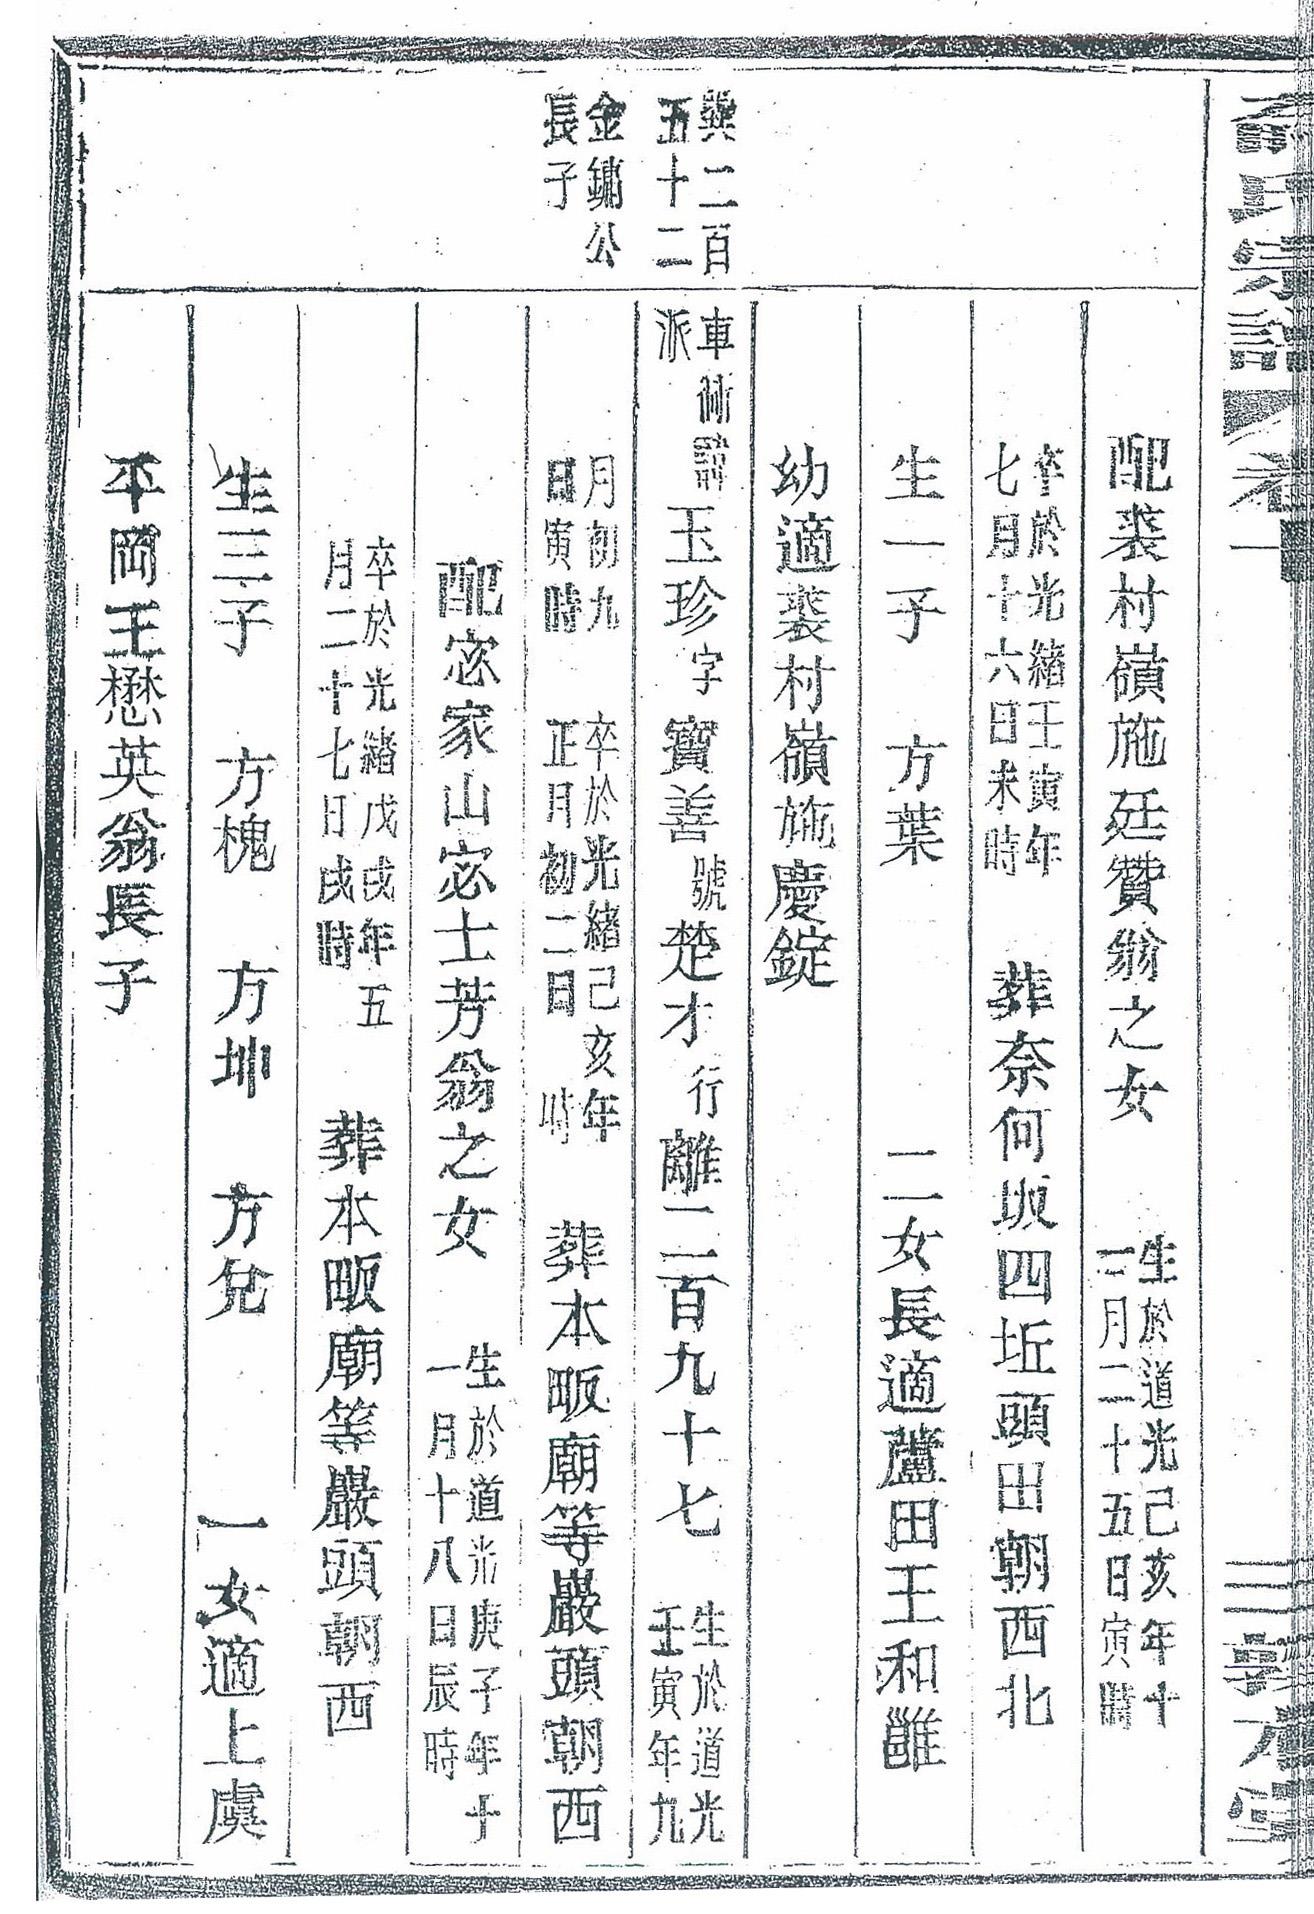 氏宗譜 卷一
配裘村嶺施廷贊翁之女 生於道光己亥年十
二月二十五日寅時
卒於光緒壬寅年
七月十六日未時 葬奈何坂四坵頭田朝西北
生一子 方葉 二女長適蘆田王和雝
幼適裘村嶺施慶錠
巽二百
五十二
金鏽公
長子
車衖
派 諱玉珍字寶善號楚才行離二百九十七 生於道光
壬寅年九
月初九
日寅時 卒於光緒己亥年
正月初二日 時 葬本畈廟等巖頭朝西
配宓家山宓士芳翁之女 生於道光庚子年十
一月十八日辰時
卒於光緒戊戌年五
月二十七日戌時 葬本畈廟等巖頭朝西
生三子 方槐 方坤 方兌 一女適上虞
平岡王懋英翁長子